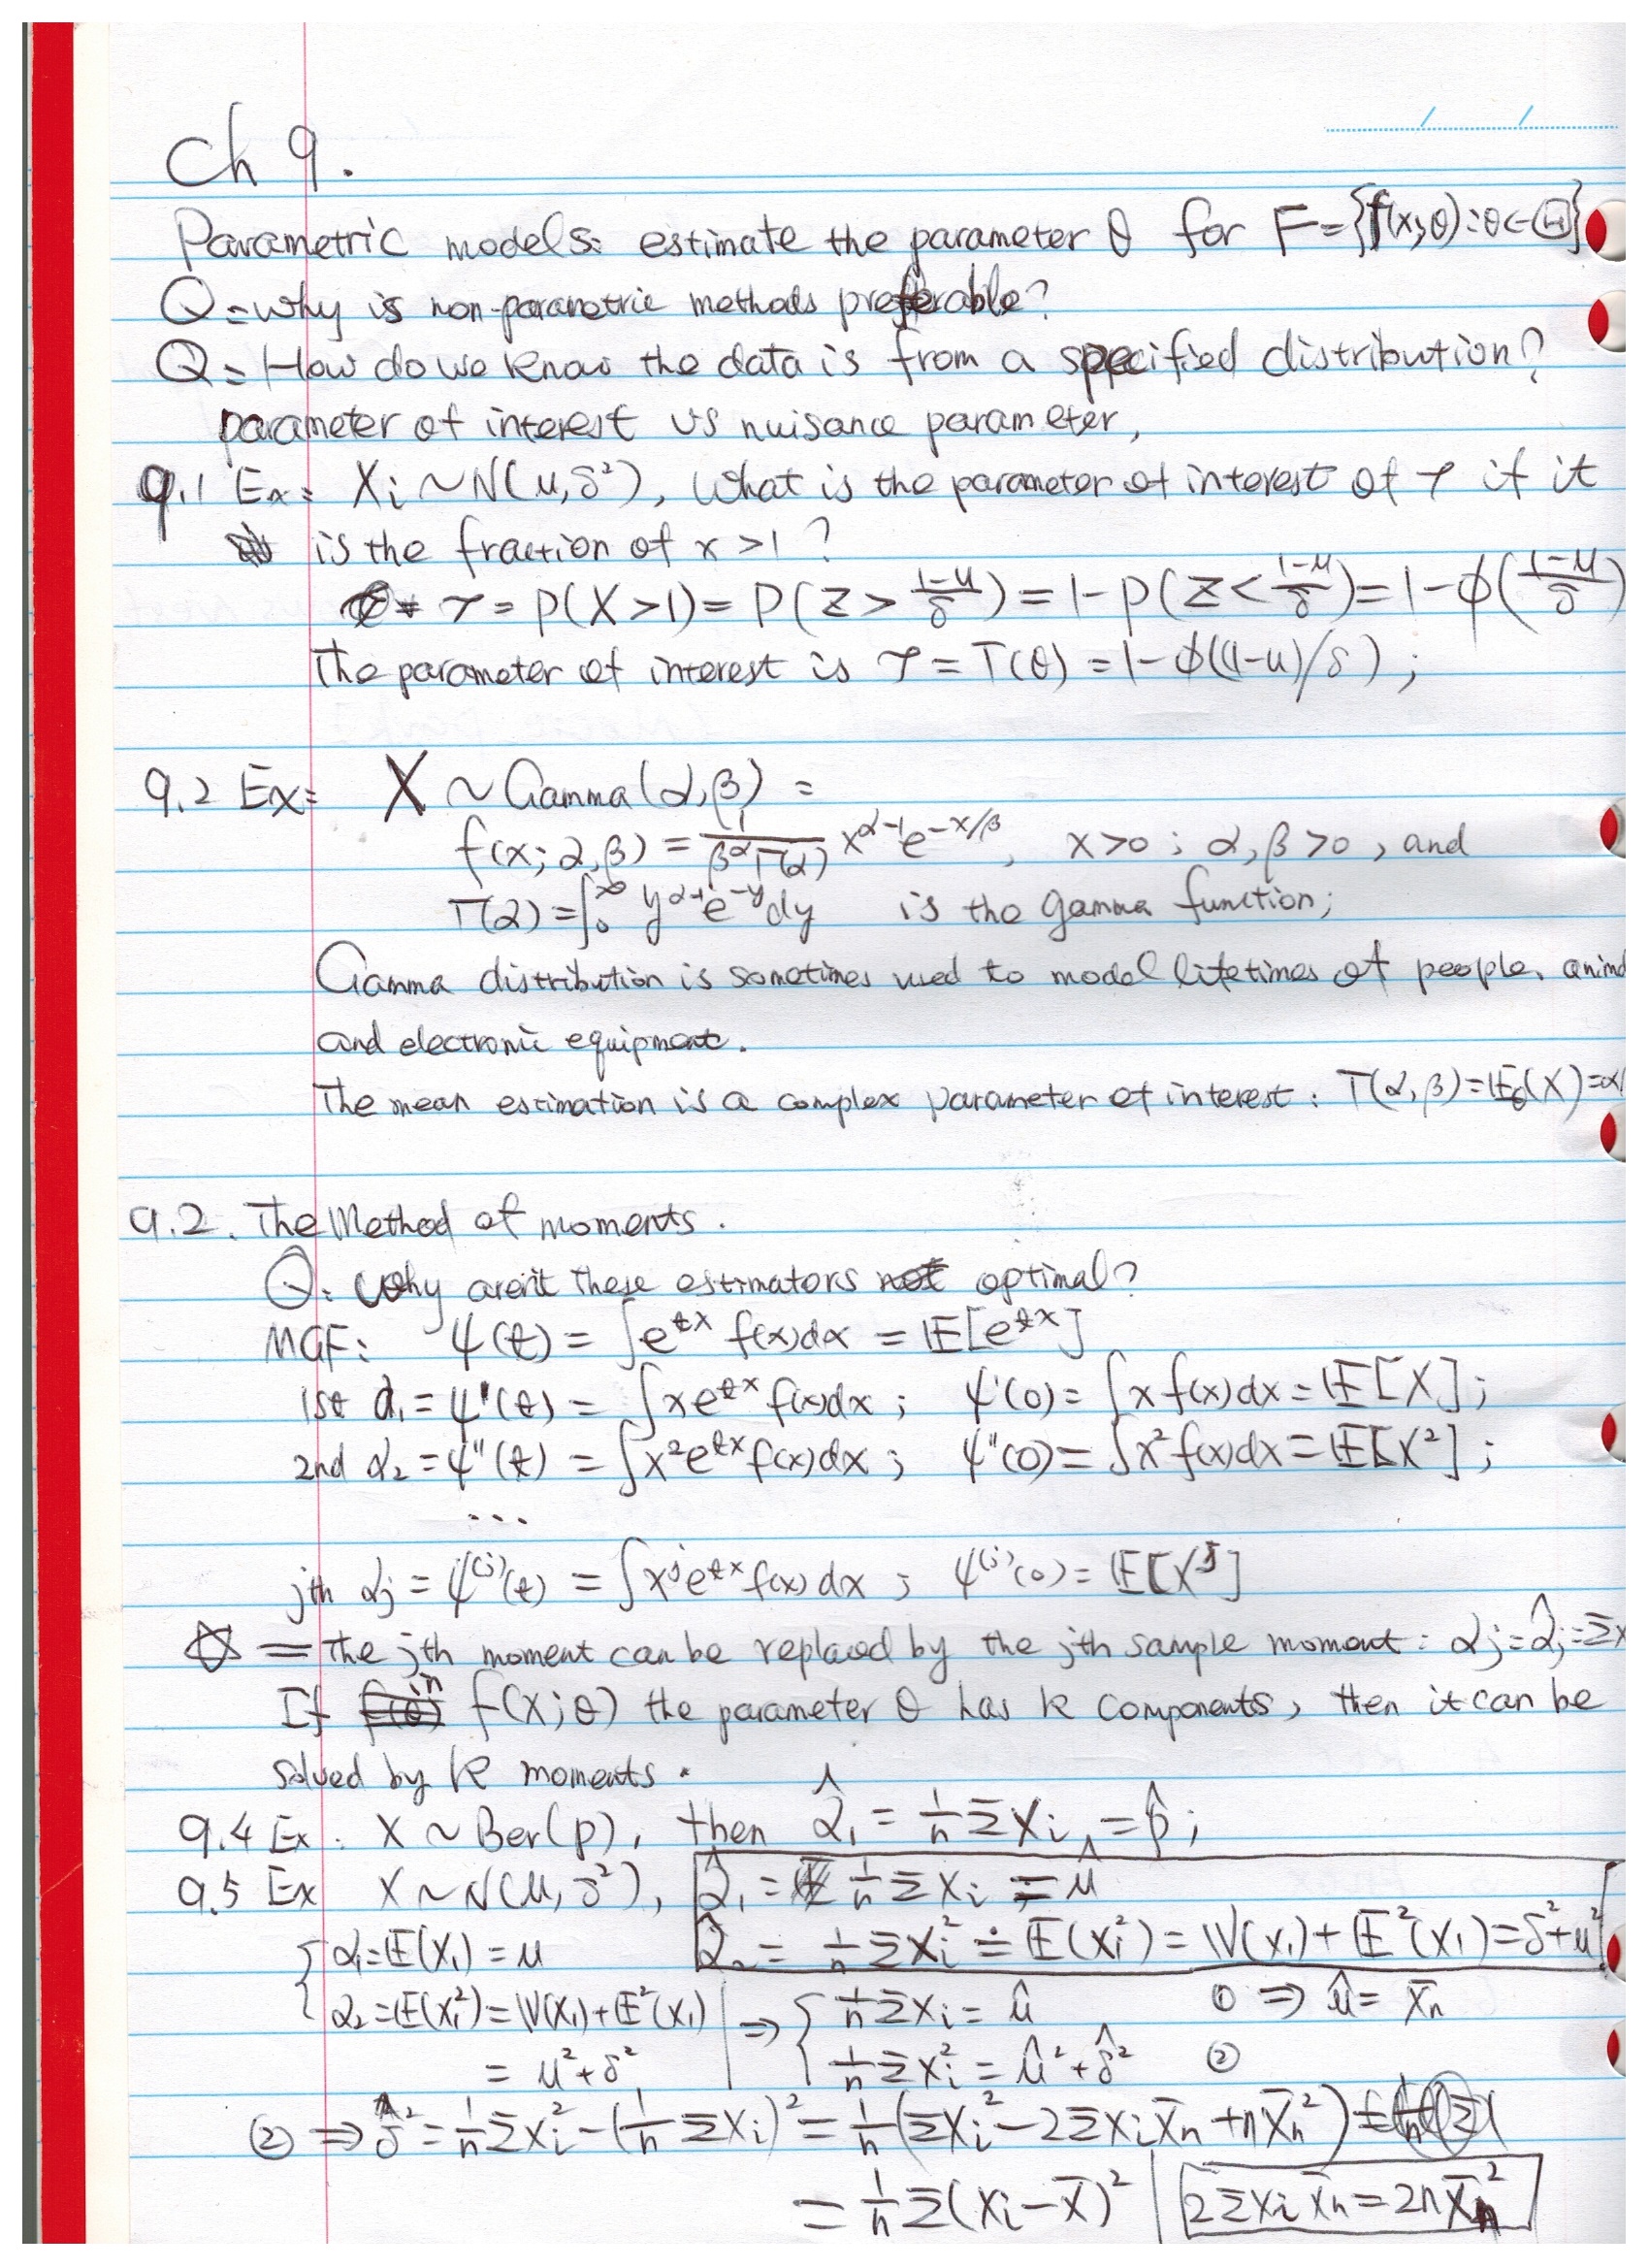 Ch 9.
Parametric models: estimate the parameter θ for F={f(x;θ):θ∈Θ}
Q: why is non-parametric methods preferable?
Q: How do we know the data is from a specified distribution?
parameter of interest vs nuisance parameter,
9.1 Ex: Xi ~ N(μ,δ²), What is the parameter of interest of τ if it
is the fraction of x >1 ?
τ = P(X>1) = P(Z > (1-μ)/δ) = 1-P(Z < (1-μ)/δ) = 1-φ((1-μ)/δ)
The parameter of interest is τ = T(θ) = 1-φ((1-μ)/δ) ;
9.2 Ex: X ~ Gamma(α,β) :
f(x; α,β) = 1/(β^α Γ(α)) x^(α-1) e^(-x/β), x>0 ; α,β >0 , and
Γ(α) = ∫₀^∞ y^(α-1) e^(-y) dy is the gamma function;
Gamma distribution is sometimes used to model lifetimes of people, anima
and electronic equipment.
The mean estimation is a complex parameter of interest: T(α,β)=𝔼θ(X)=α
9.2. The Method of moments.
Q: Why aren't these estimators optimal?
MGF: ψ(t) = ∫e^(tx) f(x)dx = 𝔼[e^(tx)]
1st α₁ = ψ'(t) = ∫xe^(tx) f(x)dx ; ψ'(0) = ∫x f(x)dx = 𝔼[X] ;
2nd α₂ = ψ''(t) = ∫x²e^(tx) f(x)dx ; ψ''(0) = ∫x² f(x)dx = 𝔼[X²] ;
...
jth αj = ψ^(j)(t) = ∫x^j e^(tx) f(x) dx ; ψ^(j)(0) = 𝔼[X^j]
☆ = The jth moment can be replaced by the jth sample moment: αj = α̂j = Σx
If in f(x;θ) the parameter θ has k components, then it can be
solved by k moments.
9.4 Ex: X ~ Ber(p), then α̂₁ = 1/n ΣXi = p̂ ;
9.5 Ex X ~ N(μ,δ²), α̂₁ = 1/n ΣXi = μ̂
α̂₂ = 1/n ΣXi² ≐ 𝔼(Xi²) = 𝕍(X₁) + 𝔼²(X₁) = δ²+μ²
{ α₁=𝔼(X₁) = μ
α₂=𝔼(X₁²) = 𝕍(X₁)+𝔼²(X₁) ⇒ { 1/n ΣXi = μ̂ ① ⇒ μ̂ = X̄n
= μ²+δ² 1/n ΣXi² = μ̂²+δ̂² ②
② ⇒ δ̂² = 1/n ΣXi² - (1/n ΣXi)² = 1/n (ΣXi² - 2ΣXi X̄n + nX̄n²)
= 1/n Σ(Xi-X̄)² | 2ΣXi X̄n = 2nX̄n²